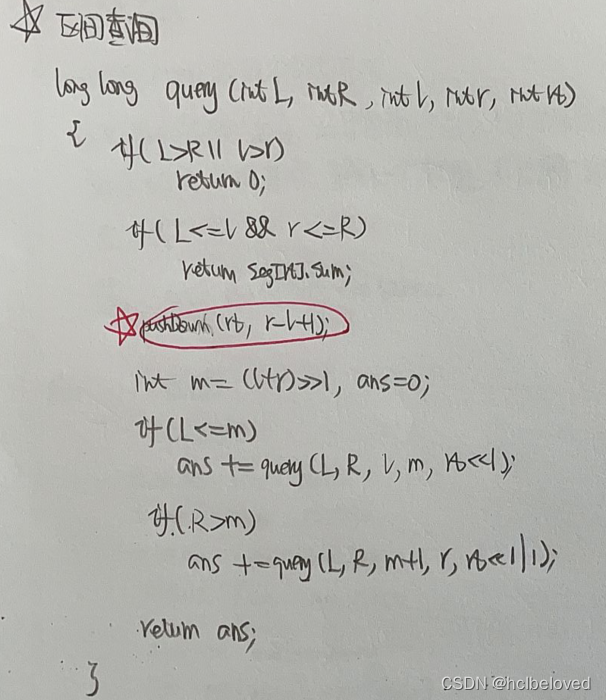 ☆ 区间查询
long long query (int L, int R, int l, int r, int rt)
{
if( L>R || l>r)
return 0;
if( L<=l && r<=R)
return seg[rt].sum;
☆ pushDown(rt, r-l+1);
int m= (l+r)>>1, ans=0;
if(L<=m)
ans += query(L, R, l, m, rt<<1);
if( R>m)
ans += query(L, R, m+1, r, rt<<1|1);
return ans;
}
CSDN @hclbeloved